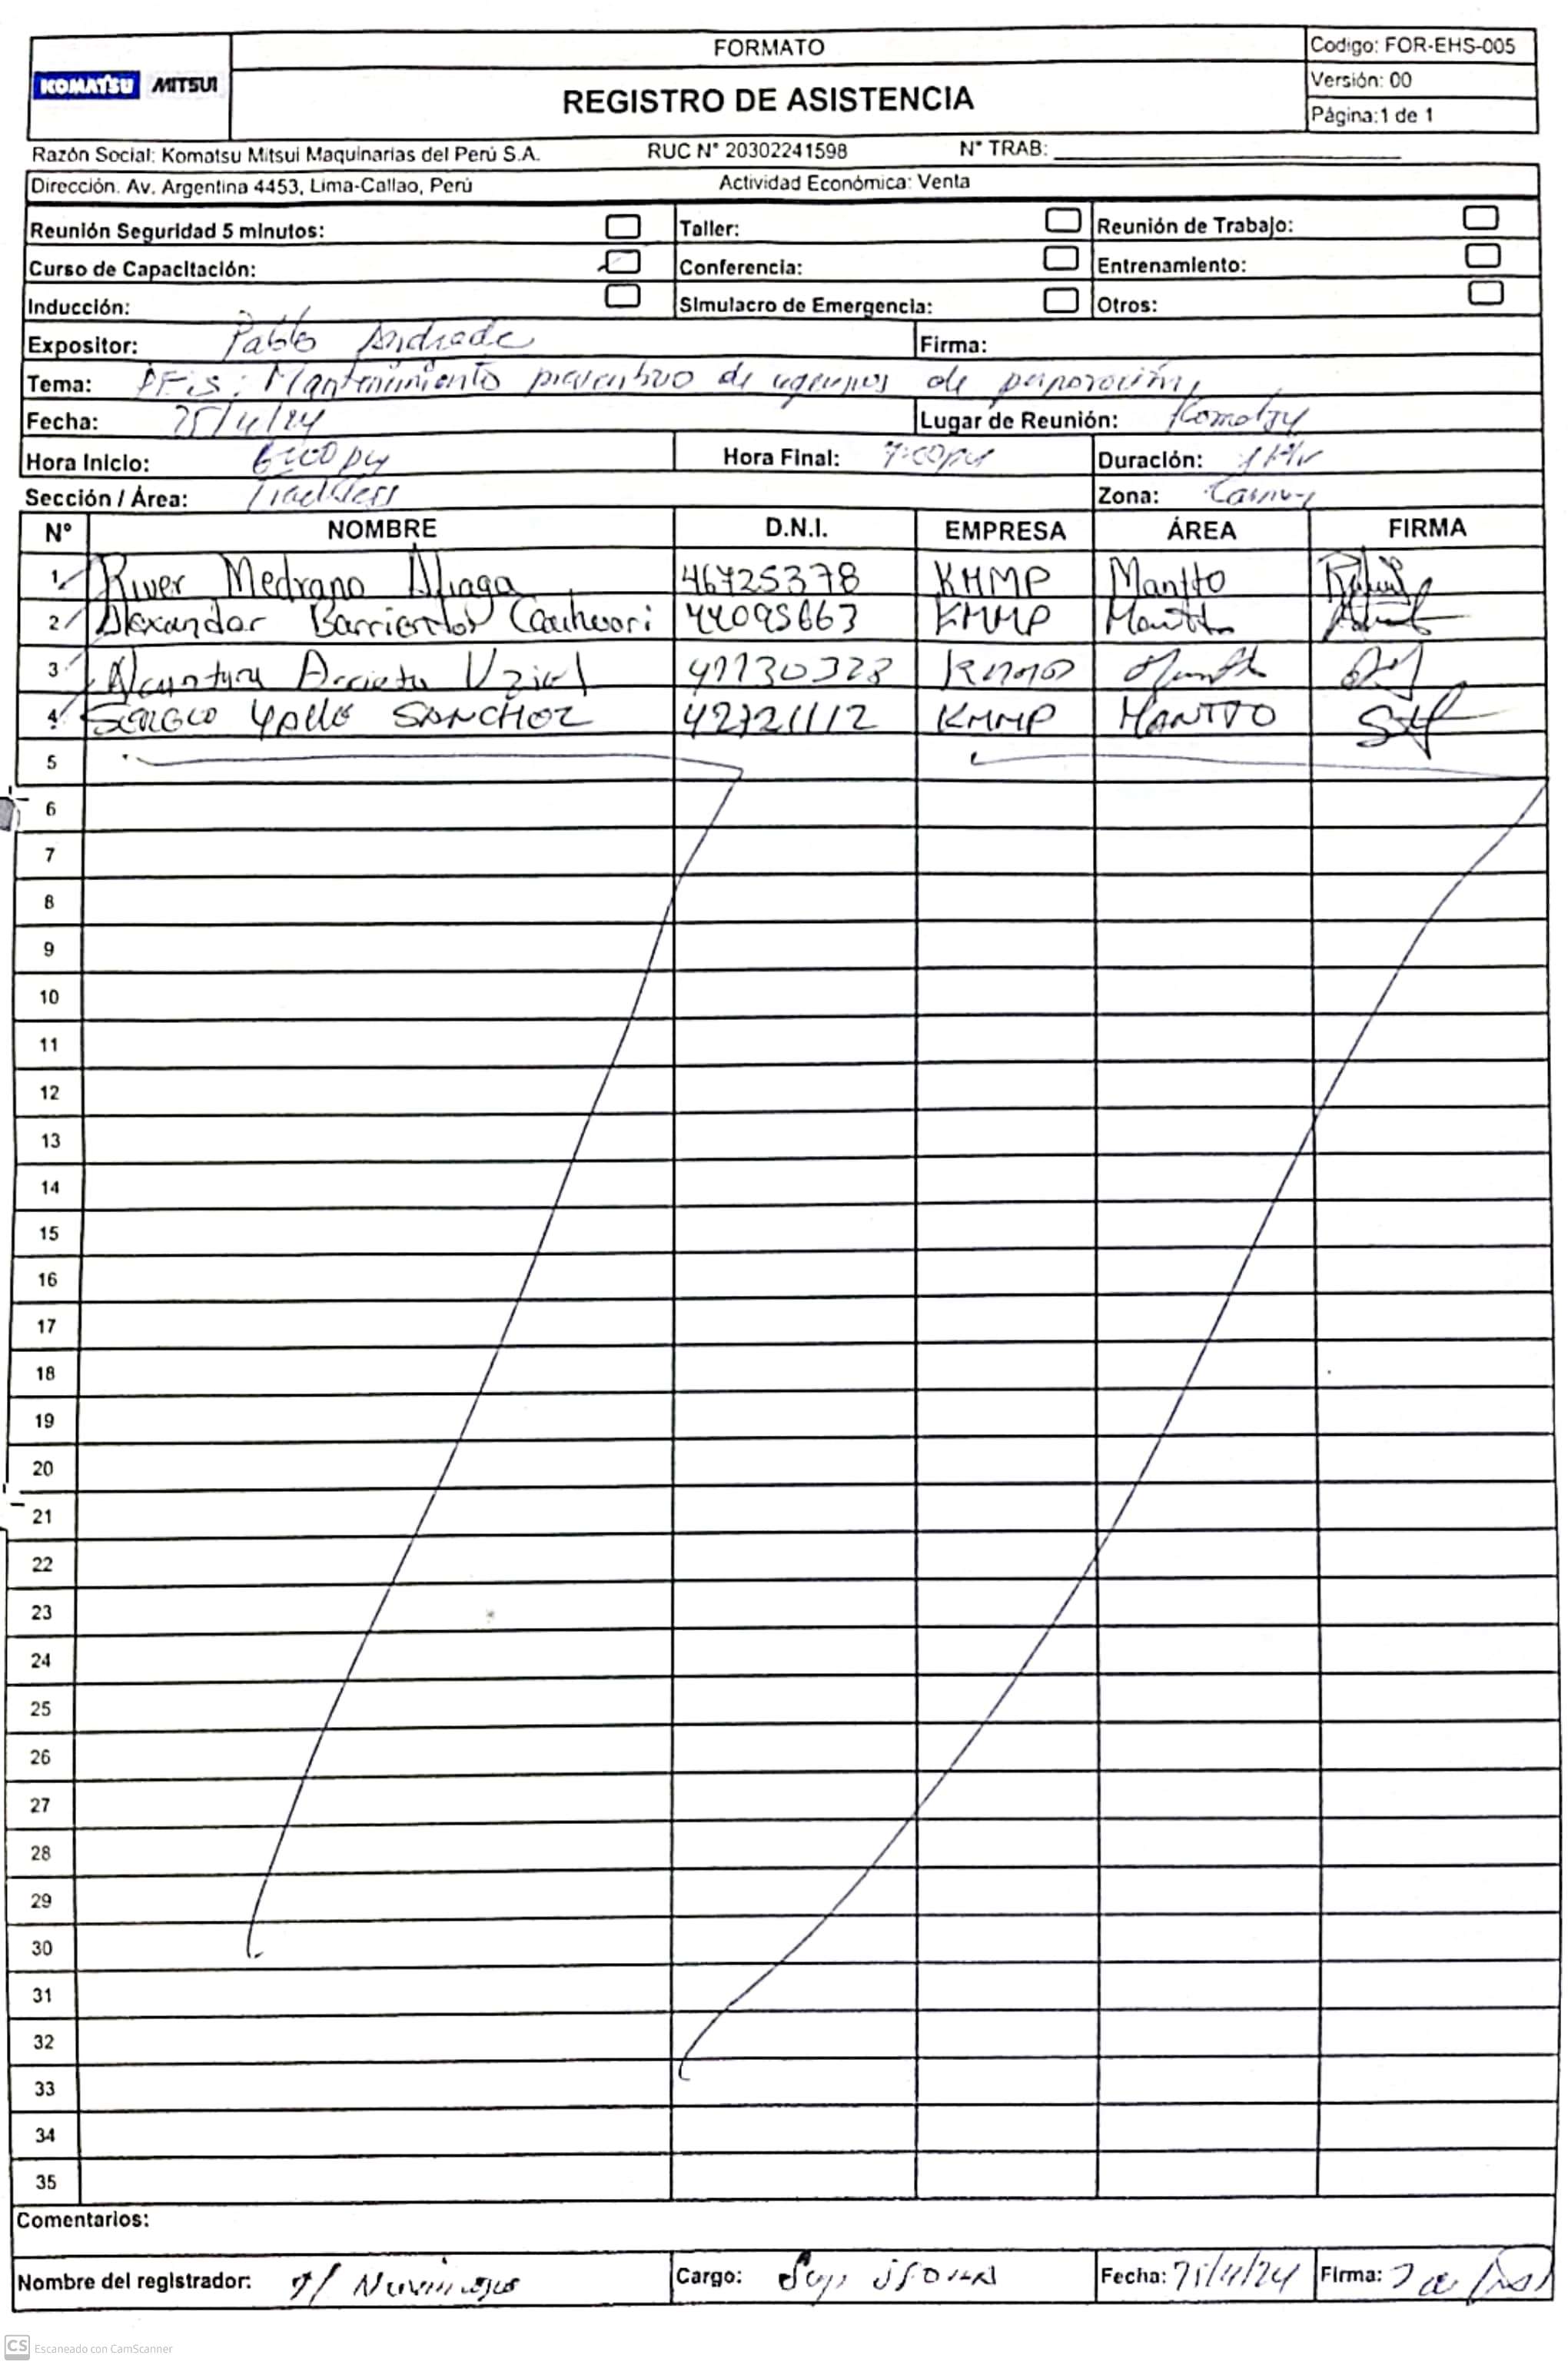 FORMATO
Codigo: FOR-EHS-005
KOMATSU MITSUI
REGISTRO DE ASISTENCIA
Versión: 00
Página:1 de 1
Razón Social: Komatsu Mitsui Maquinarias del Perú S.A. RUC N° 20302241598 N° TRAB:
Dirección. Av. Argentina 4453, Lima-Callao, Perú Actividad Económica: Venta
Reunión Seguridad 5 minutos: Taller: Reunión de Trabajo:
Curso de Capacitación: Conferencia: Entrenamiento:
Inducción: Simulacro de Emergencia: Otros:
Expositor: Pablo Andrade Firma:
Tema: Mantenimiento preventivo de equipos de perforación
Fecha: Lugar de Reunión:
Hora Inicio: Hora Final: 7:00 Duración: 1 Hr
Sección / Área: Zona:
N° NOMBRE D.N.I. EMPRESA ÁREA FIRMA
1 River Medrano Aliaga 46725378 KMMP Mantto
2 Alexander Barrientos 44095663 KMMP Mantto
3 Uziel
4 SERGIO SANCHEZ 42721112 KMMP MANTTO
5
6
7
8
9
10
11
12
13
14
15
16
17
18
19
20
21
22
23
24
25
26
27
28
29
30
31
32
33
34
35
Comentarios:
Nombre del registrador: Cargo: Fecha: Firma:
CS Escaneado con CamScanner